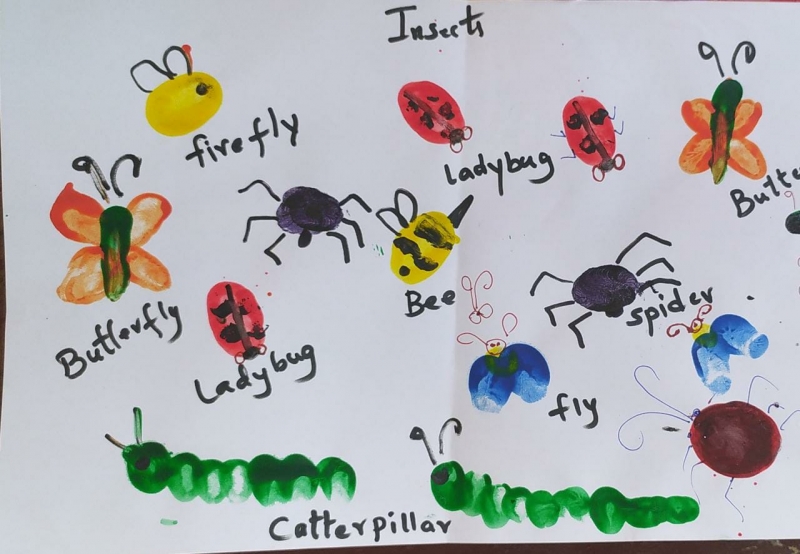 Insects
firefly
ladybug
Butte
Butterfly
Bee
spider
Ladybug
fly
Catterpillar